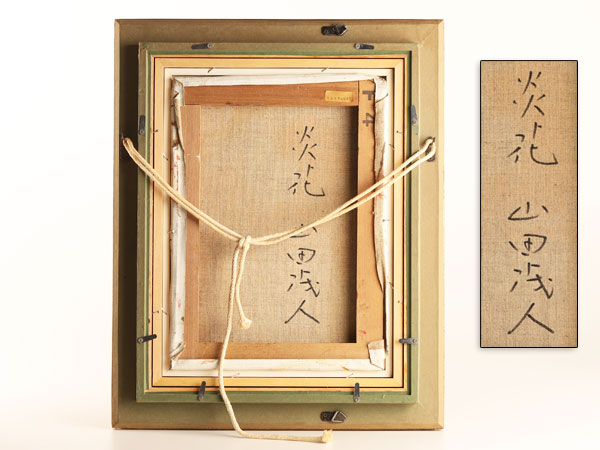 炎花 山田浅人
F4
炎花 山田浅人